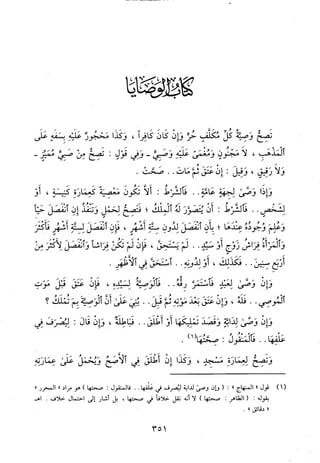 كتاب الوصايا
تصح وصية كل مكلف حر وإن كان كافراً ، وكذا محجور عليه بسفه على
المذهب ، لا مجنون ومغمى عليه وصبي - وفي قول : تصح من صبي مميز -
ولا رقيق ، وقيل : إن عتق ثم مات .. صحت .
وإذا وصى لجهة عامة .. فالشرط : ألا تكون معصية كعمارة كنيسة ، أو
لشخص .. فالشرط : أن يتصور له الملك ؛ فتصح لحمل وتنفذ إن انفصل حياً
وعلم وجوده عندها ؛ بأن انفصل لدون ستة أشهر ، فإن انفصل لستة أشهر فأكثر
والمرأة فراش زوج أو سيد .. لم يستحق ، فإن لم تكن فراشاً وانفصل لأكثر من
أربع سنين .. فكذلك ، أو لدونه .. استحق في الأظهر .
وإن وصى لعبد فاستمر رقه .. فالوصية لسيده ، فإن عتق قبل موت
الموصي .. فله ، وإن عتق بعد موته ثم قبل .. بني على أن الوصية بم تملك ؟
وإن وصى لدابة وقصد تمليكها أو أطلق .. فباطلة ، وإن قال : ليصرف في
علفها .. فالمنقول : صحتها (١) .
وتصح لعمارة مسجد ، وكذا إن أطلق في الأصح وتحمل على عمارته
(١) قول « المنهاج » : ( وإن وصى لدابة ليصرف في علفها .. فالمنقول : صحتها ) هو مراد « المحرر »
بقوله : ( الظاهر : صحتها ) لا أنه نقل خلافاً في صحتها ، بل أشار إلى احتمال خلاف . اهـ
« دقائق » .
٣٥١